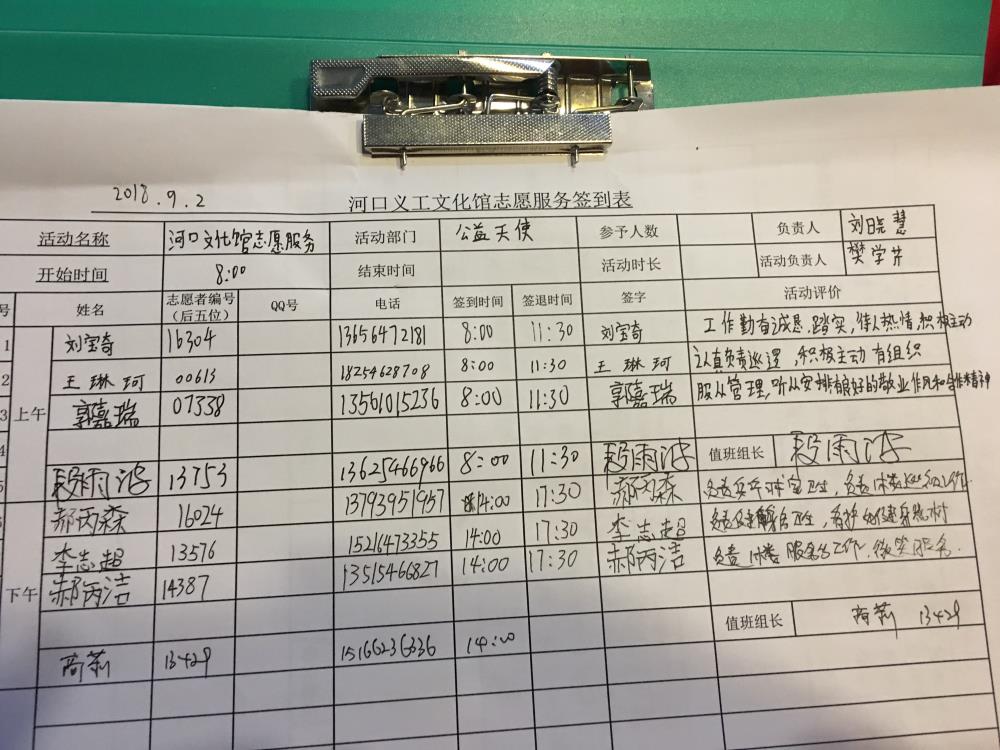 2018.9.2 河口义工文化馆志愿服务签到表
活动名称 河口文化馆志愿服务 活动部门 公益天使 参予人数 负责人 刘晓慧
开始时间 8:00 结束时间 活动时长 活动负责人 樊学芹
号 姓名 志愿者编号（后五位） QQ号 电话 签到时间 签退时间 签字 活动评价
1 上午 刘宝奇 16304 13656472181 8:00 11:30 刘宝奇 工作勤奋诚恳,踏实,待人热情,积极主动
2 王琳珂 00613 18254628708 8:00 11:30 王琳珂 认真负责巡逻,积极主动有组织
3 郭嘉瑞 07338 13561015236 8:00 11:30 郭嘉瑞 服从管理,听从安排有良好的敬业作风和合作精神
4
5 段雨 13753 13625466966 8:00 11:30 段雨 值班组长 段雨
下午 郝丙森 16024 13793951957 14:00 17:30 郝丙森 负责乒乓球室卫生,负责
李志超 13576 15216473355 14:00 17:30 李志超 负责 卫生,看护 健身器材
郝丙洁 14387 13515466827 14:00 17:30 郝丙洁 负责 服务台工作,微笑服务.
商莉 13429 15166236336 14:00 值班组长 商莉 13429